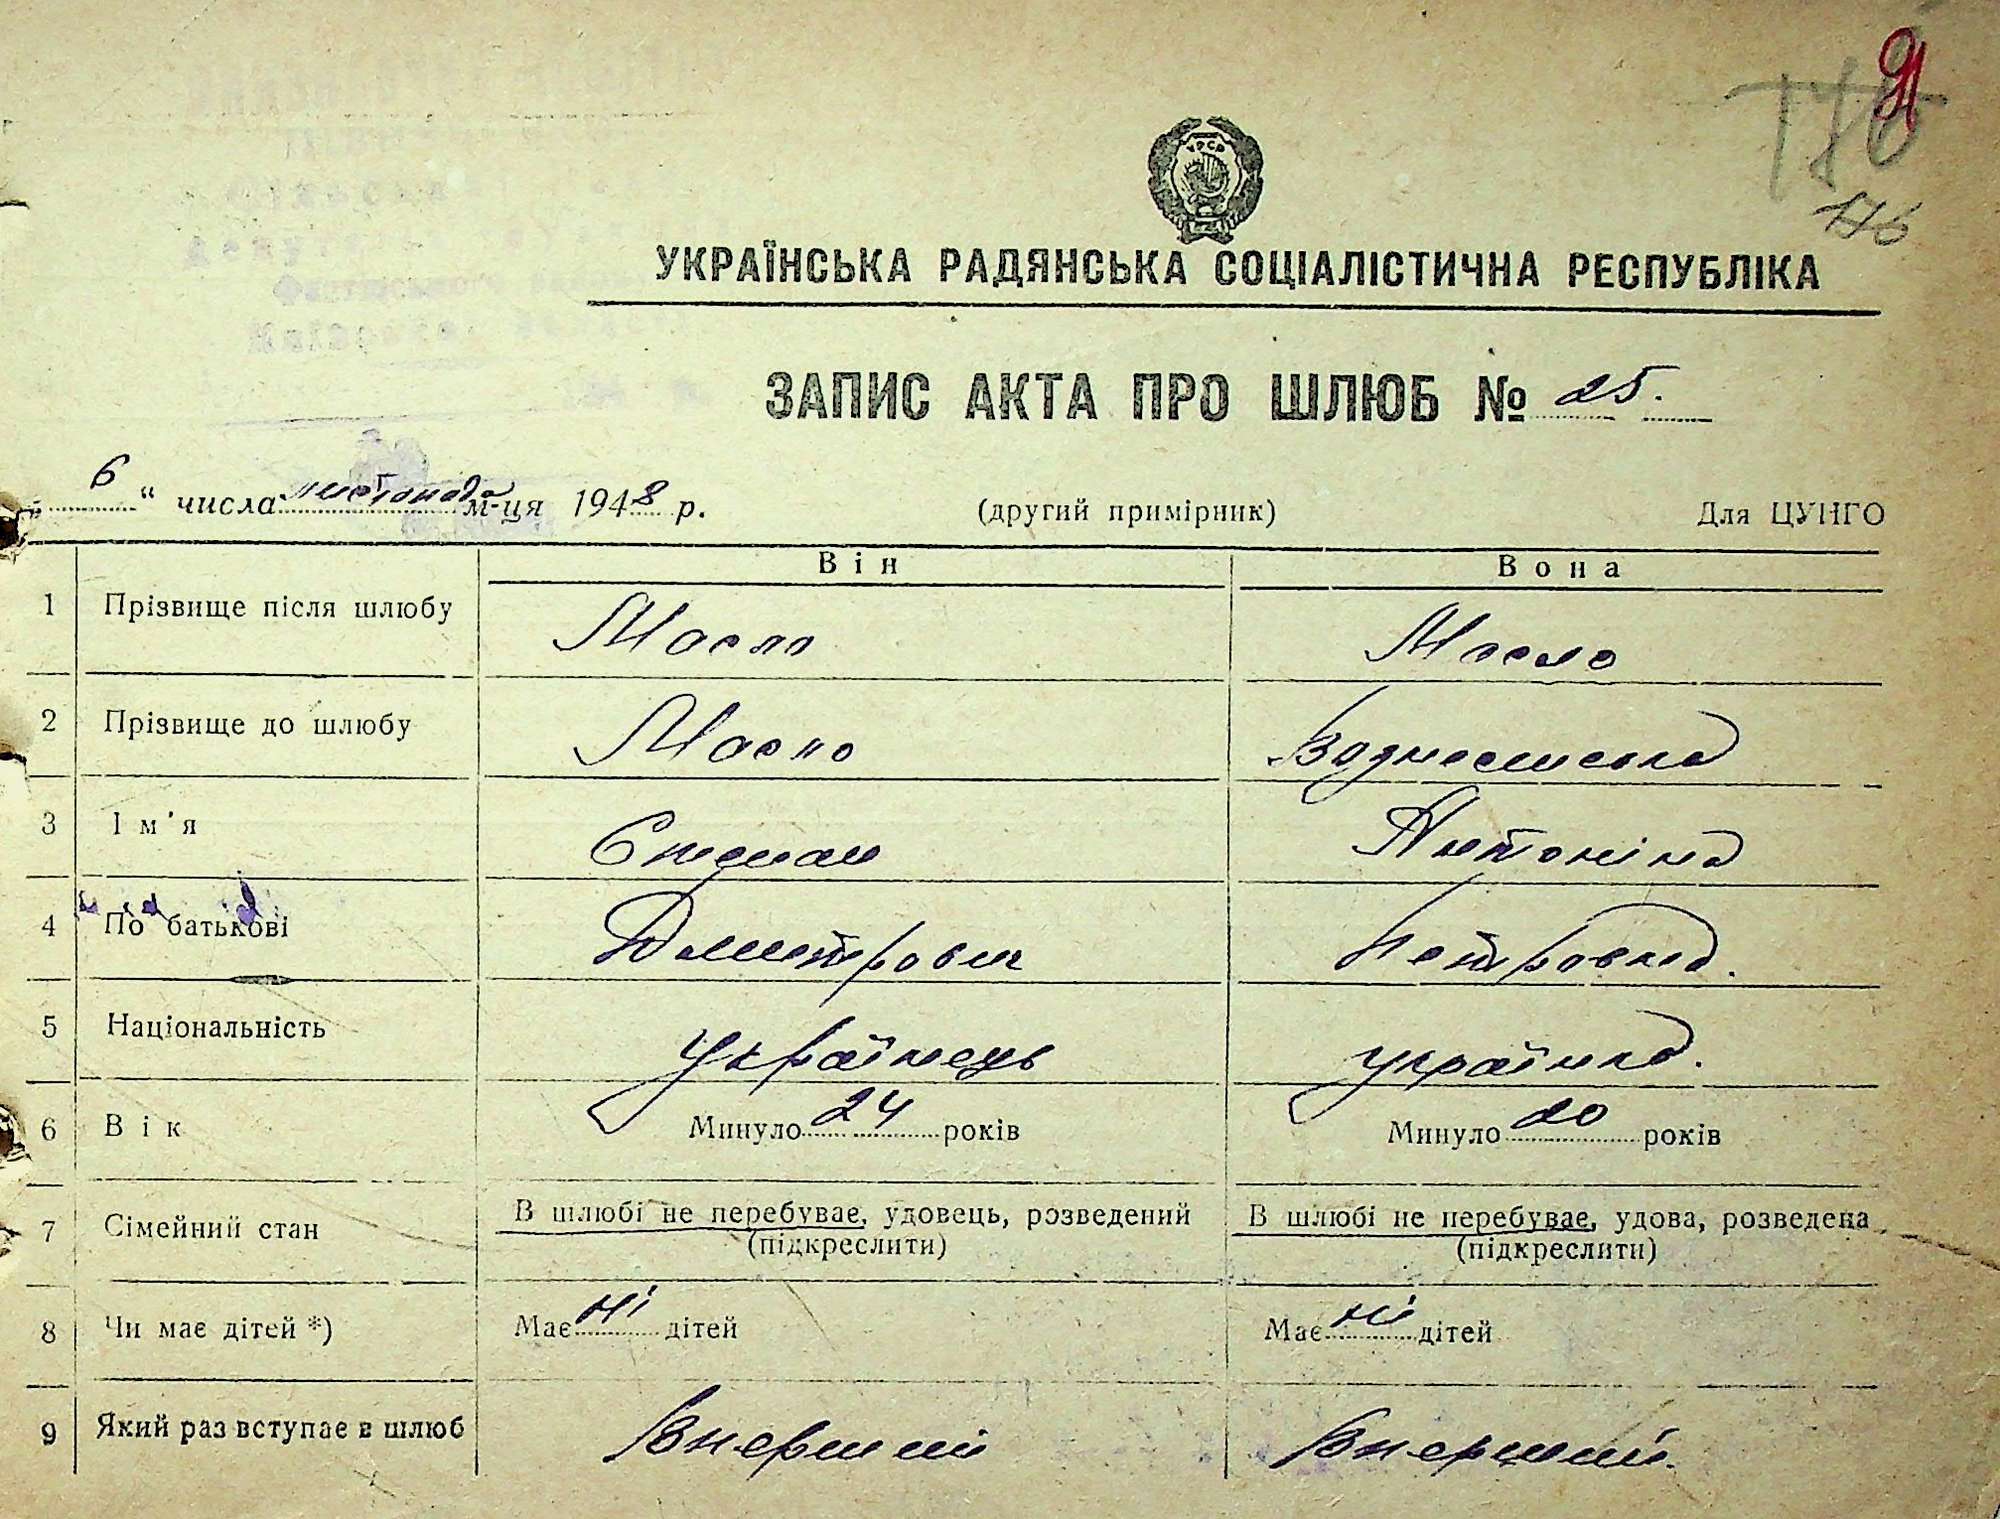 91
176
176
УРСР
УКРАЇНСЬКА РАДЯНСЬКА СОЦІАЛІСТИЧНА РЕСПУБЛІКА
ЗАПИС АКТА ПРО ШЛЮБ № 25.
6 " числа листопада м-ця 1948 р. (другий примірник) Для ЦУНГО
Він Вона
1 Прізвище після шлюбу Масло Масло
2 Прізвище до шлюбу Масло
3 Ім'я Степан Антоніна
4 По батькові Дмитрович Петровна.
5 Національність Українець українка.
6 Вік Минуло 24 років Минуло 20 років
7 Сімейний стан В шлюбі не перебуває, удовець, розведений В шлюбі не перебуває, удова, розведена
(підкреслити) (підкреслити)
8 Чи має дітей *) Має ні дітей Має ні дітей
9 Який раз вступає в шлюб Вперший Вперший.